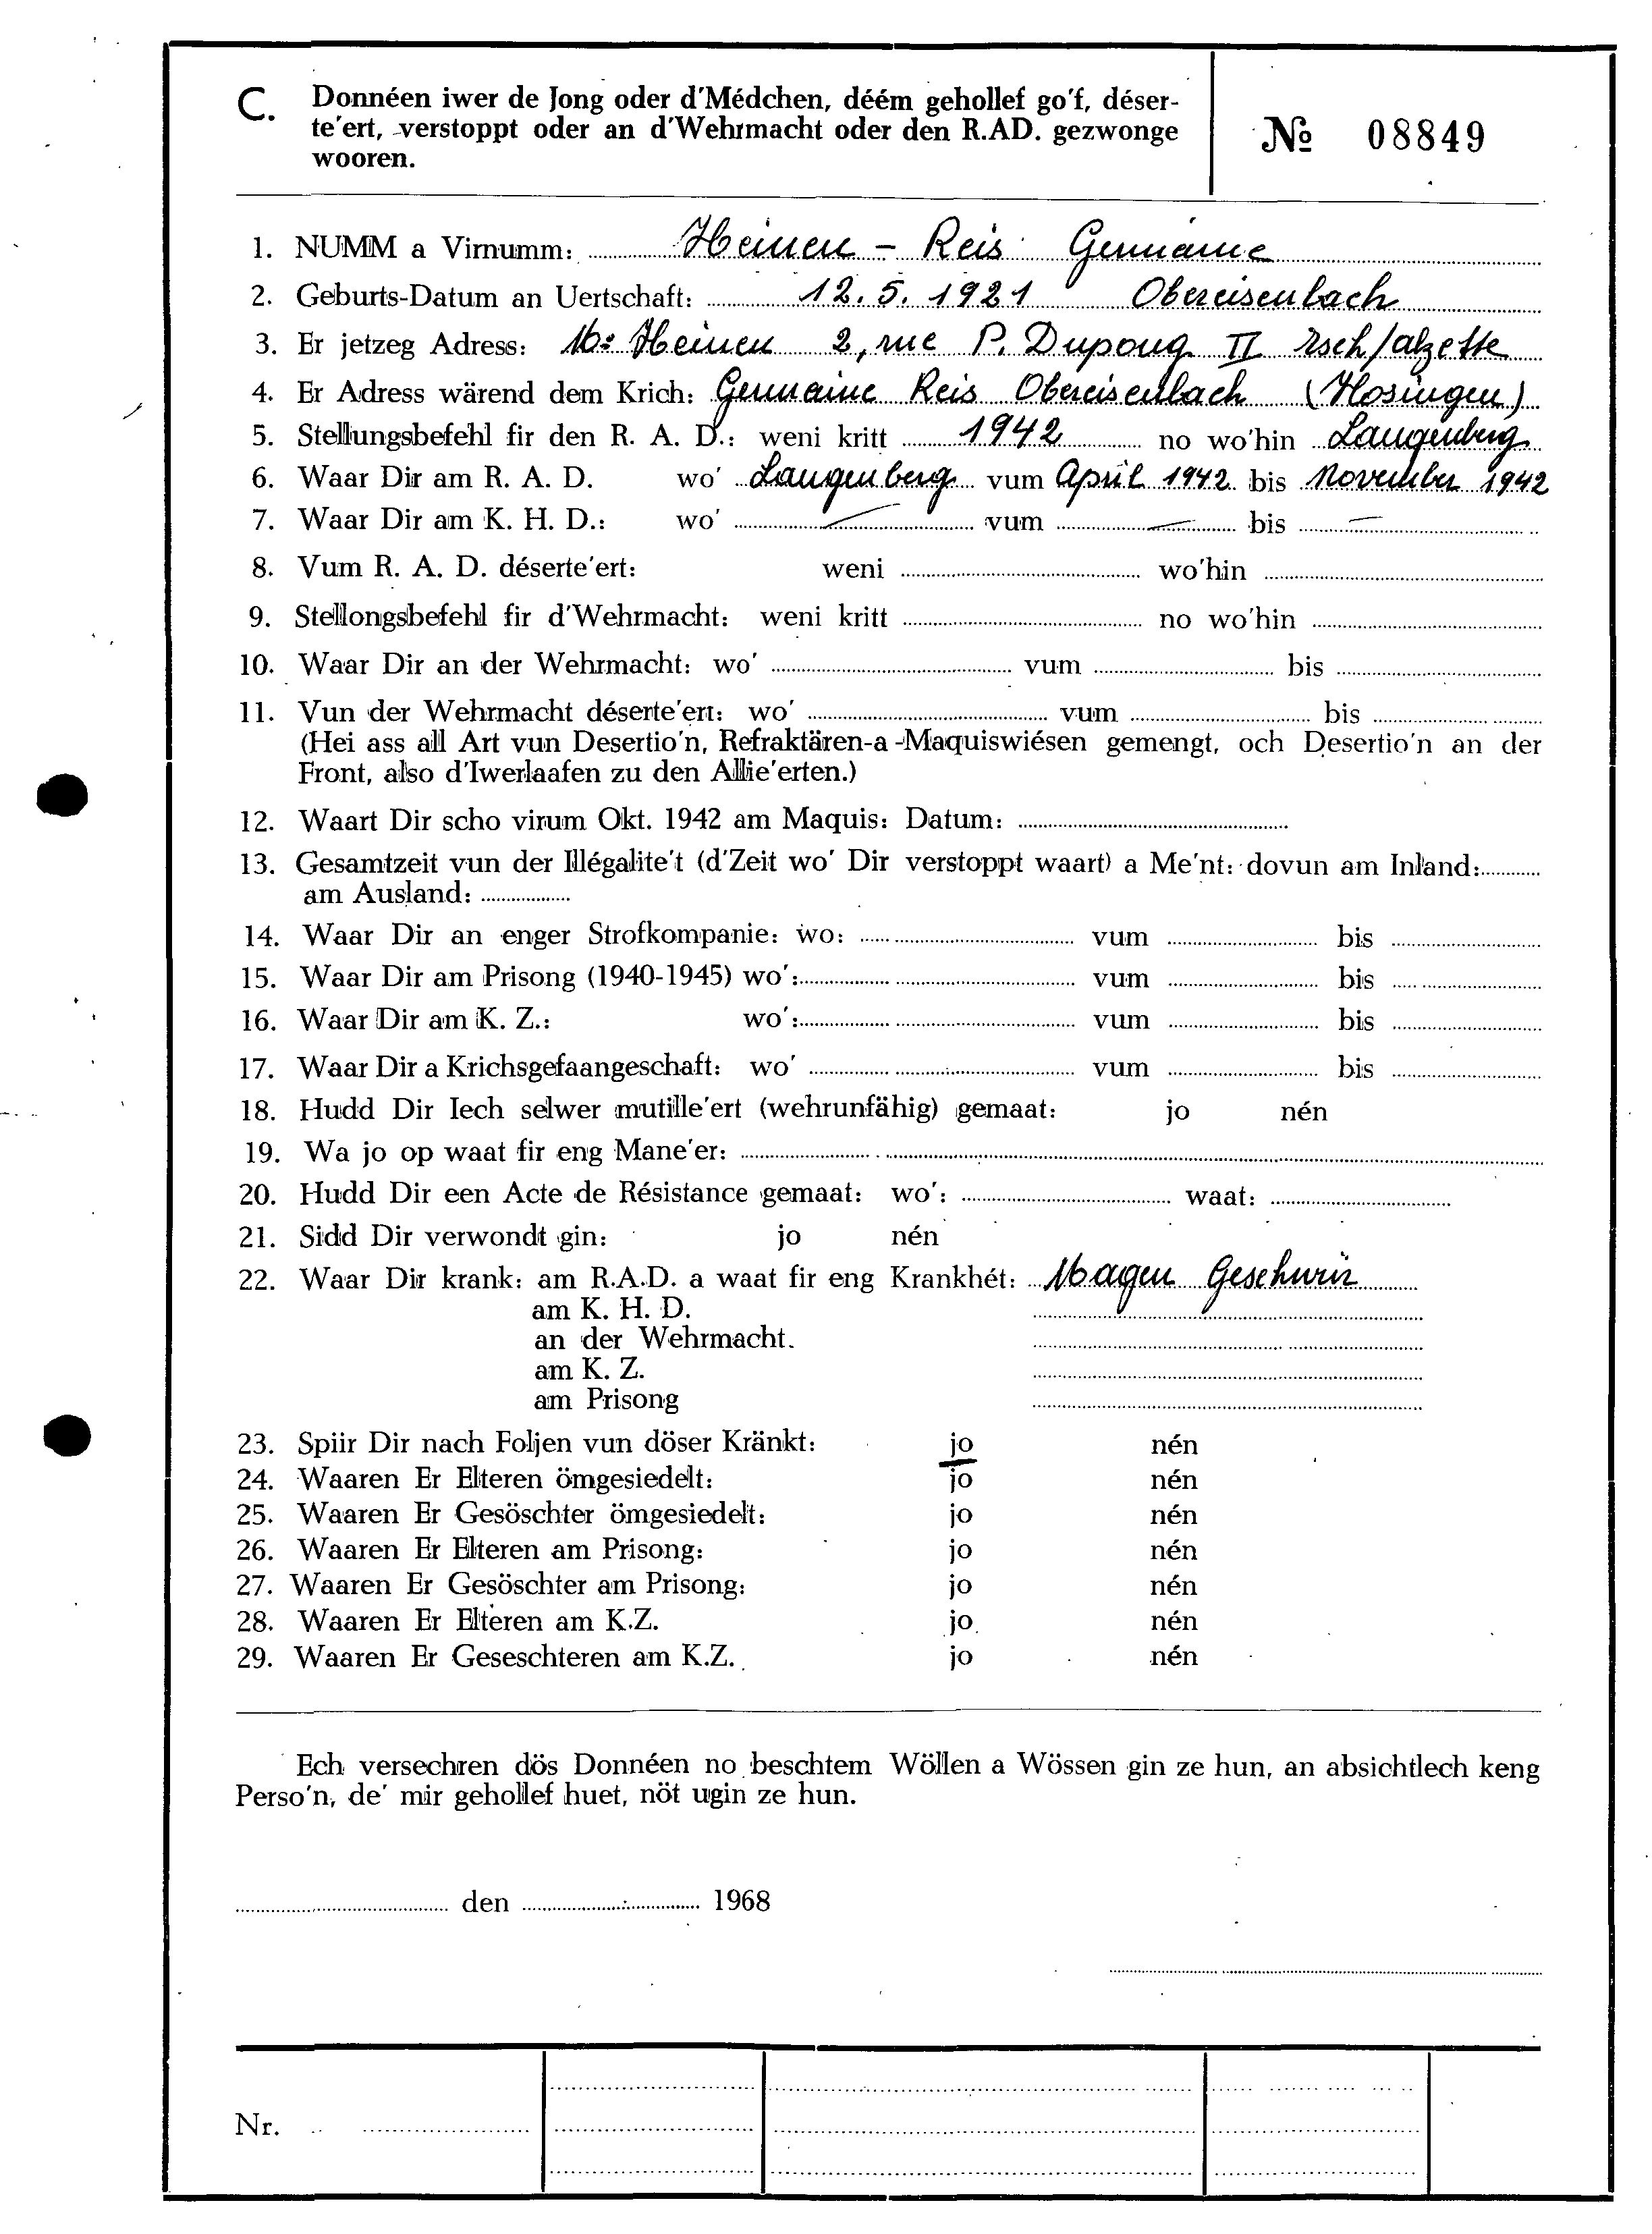 C. Donnéen iwer de Jong oder d'Médchen, déém gehollef go'f, déser-
te'ert, verstoppt oder an d'Wehrmacht oder den R.AD. gezwonge
wooren.
№ 08849
1. NUMM a Virnumm: Heinen - Reis Germaine
2. Geburts-Datum an Uertschaft: 12. 5. 1921 Obereisenbach
3. Er jetzeg Adress: Heinen 2, rue P. Dupong II Esch/alzette
4. Er Adress wärend dem Krich: Germaine Reis Obereisenbach (Hosingen)
5. Stellungsbefehl fir den R. A. D.: weni kritt 1942 no wo'hin Langenberg
6. Waar Dir am R. A. D. wo' Langenberg vum April 1942 bis November 1942
7. Waar Dir am K. H. D.: wo' — vum — bis —
8. Vum R. A. D. déserte'ert: weni wo'hin
9. Stellongsbefehl fir d'Wehrmacht: weni kritt no wo'hin
10. Waar Dir an der Wehrmacht: wo' vum bis
11. Vun der Wehrmacht déserte'ert: wo' vum bis
(Hei ass all Art vun Desertio'n, Refraktären-a-Maquiswiésen gemengt, och Desertio'n an der
Front, also d'Iwerlaafen zu den Allie'erten.)
12. Waart Dir scho virum Okt. 1942 am Maquis: Datum:
13. Gesamtzeit vun der Illégalite't (d'Zeit wo' Dir verstoppt waart) a Me'nt: dovun am Inland:
am Ausland:
14. Waar Dir an enger Strofkompanie: wo: vum bis
15. Waar Dir am Prisong (1940-1945) wo': vum bis
16. Waar Dir am K. Z.: wo': vum bis
17. Waar Dir a Krichsgefaangeschaft: wo' vum bis
18. Hudd Dir Iech selwer mutille'ert (wehrunfähig) gemaat: jo nén
19. Wa jo op waat fir eng Mane'er:
20. Hudd Dir een Acte de Résistance gemaat: wo': waat:
21. Sidd Dir verwondt gin: jo nén
22. Waar Dir krank: am R.A.D. a waat fir eng Krankhét: Magen Geschwür
am K. H. D.
an der Wehrmacht.
am K. Z.
am Prisong
23. Spiir Dir nach Foljen vun döser Kränkt: jo nén
24. Waaren Er Elteren ömgesiedelt: jo nén
25. Waaren Er Gesöschter ömgesiedelt: jo nén
26. Waaren Er Elteren am Prisong: jo nén
27. Waaren Er Gesöschter am Prisong: jo nén
28. Waaren Er Elteren am K.Z. jo nén
29. Waaren Er Geseschteren am K.Z. jo nén
Ech versechren dös Donnéen no beschtem Wöllen a Wössen gin ze hun, an absichtlech keng
Perso'n, de' mir gehollef huet, nöt ugin ze hun.
den 1968
Nr.